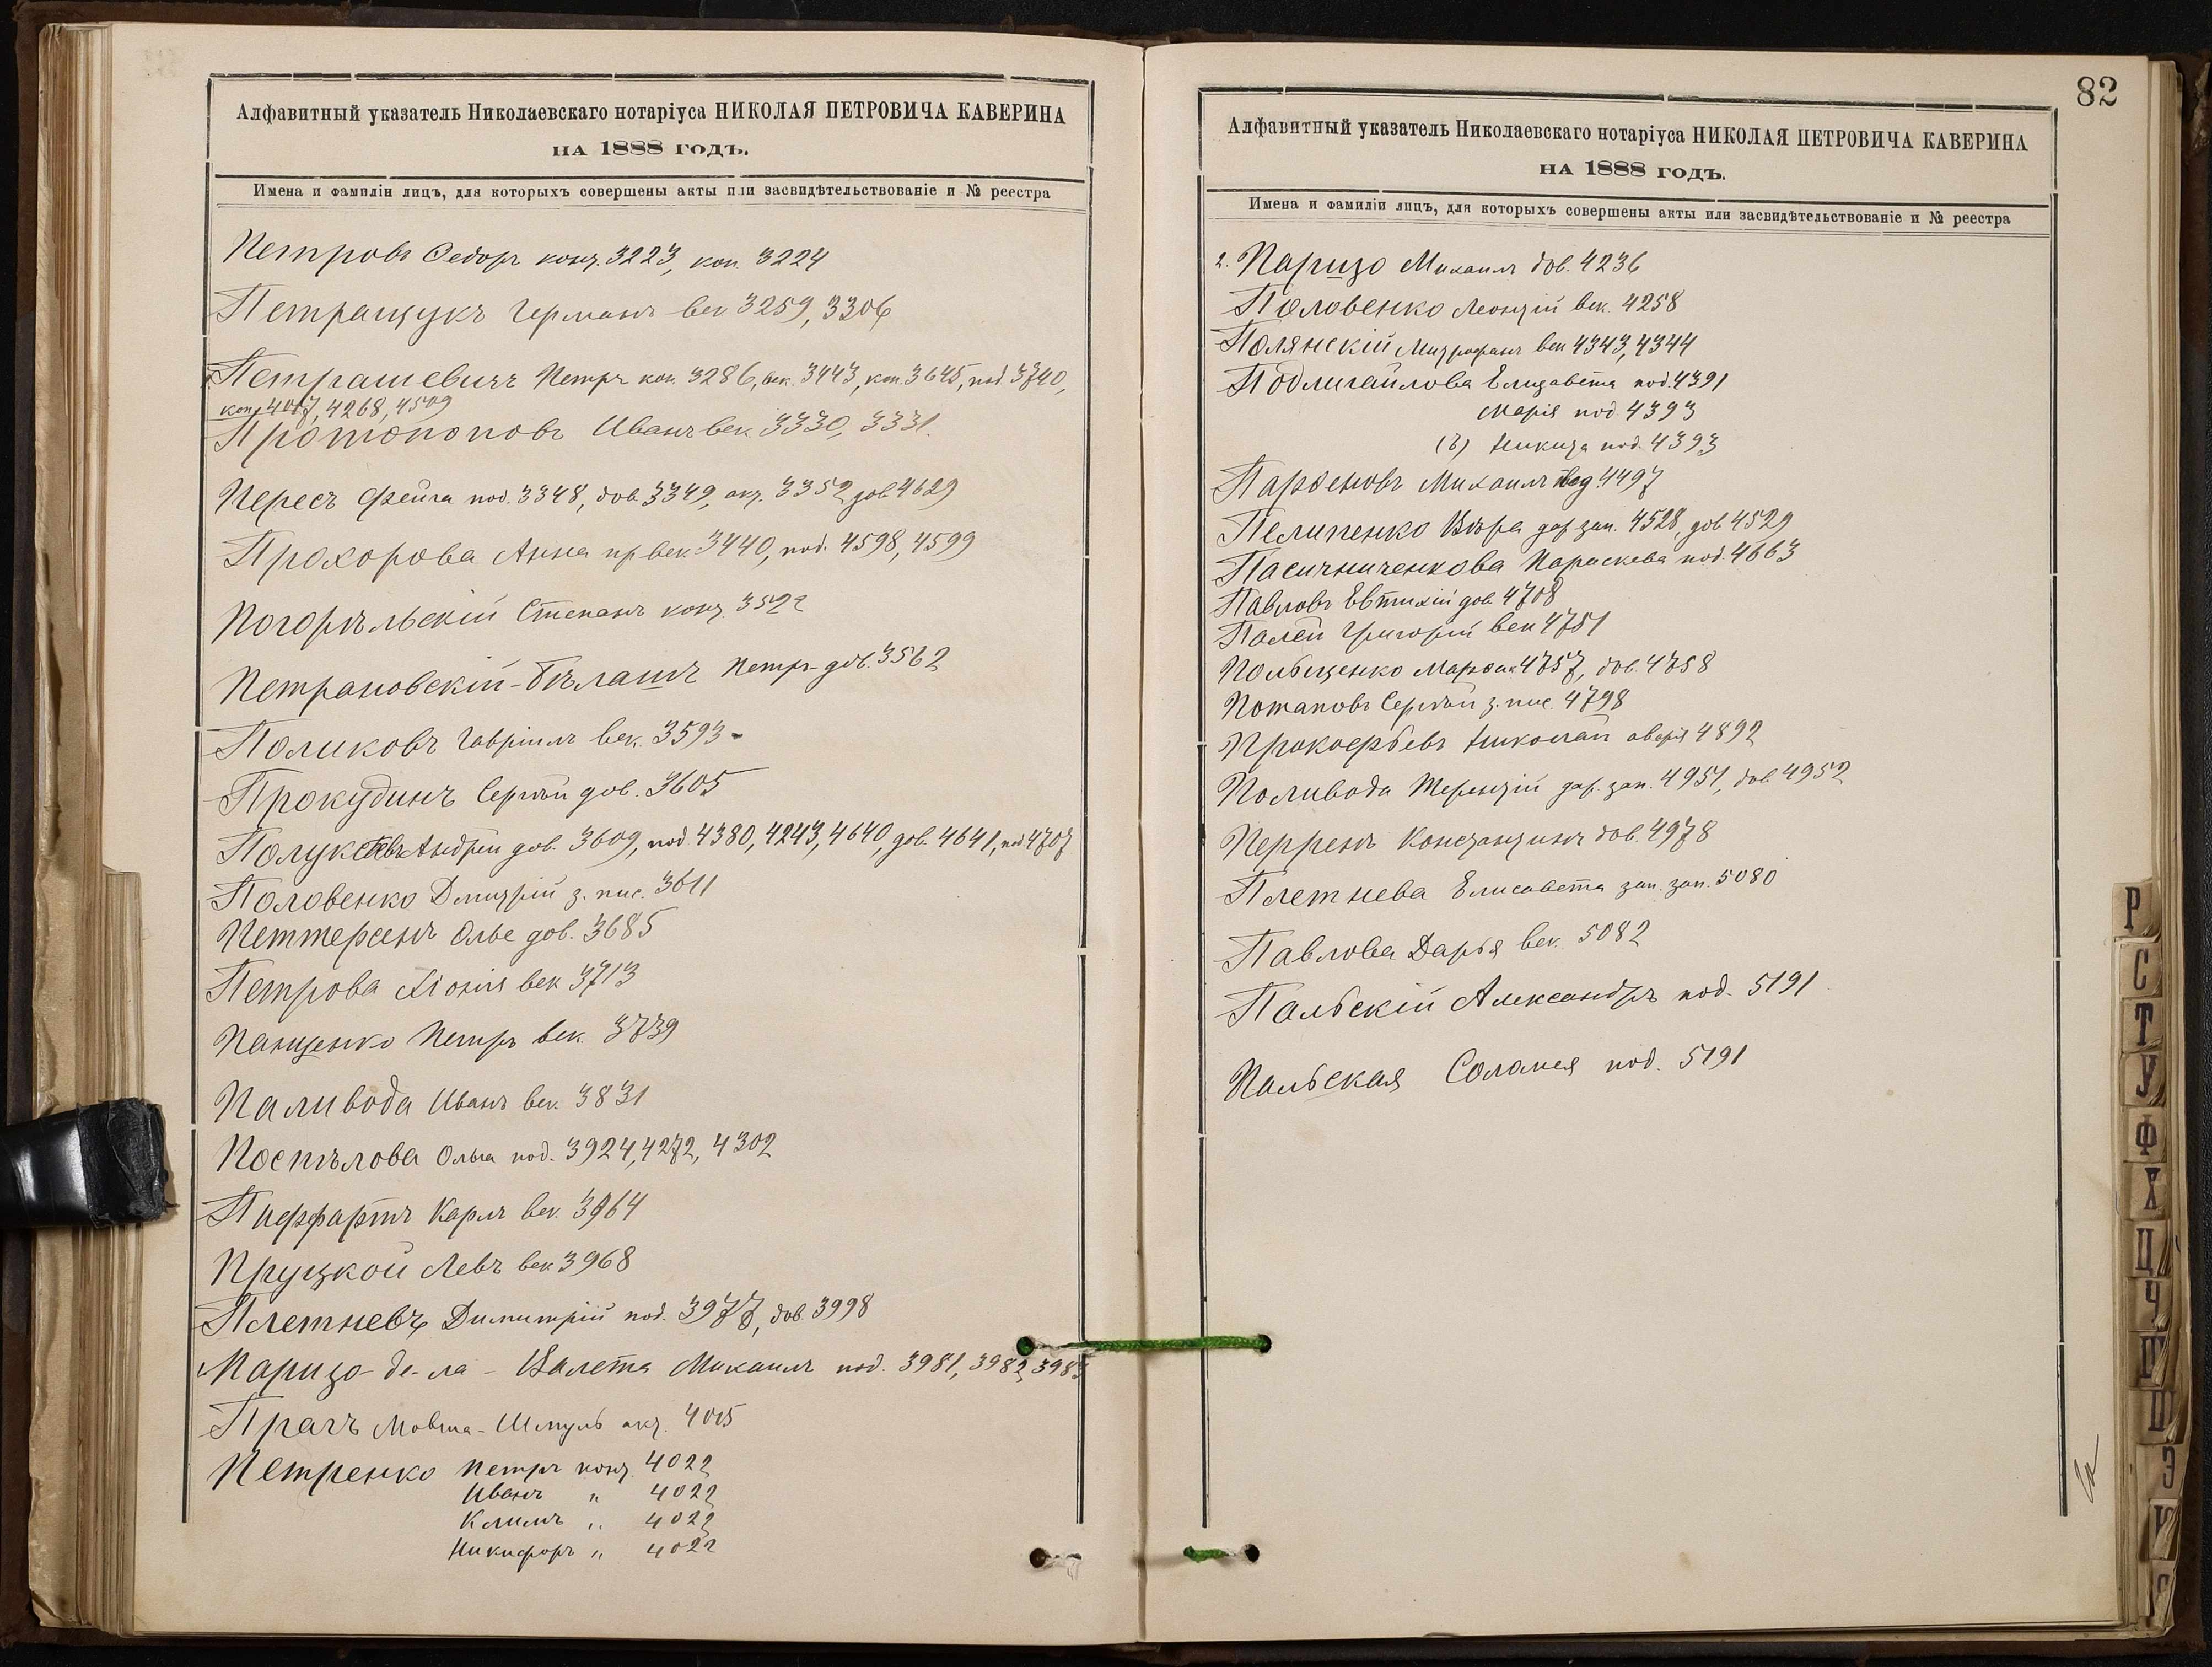 Алфавитный указатель Николаевскаго нотаріуса НИКОЛАЯ ПЕТРОВИЧА КАВЕРИНА
НА 1888 ГОДЪ.
Имена и фамиліи лицъ, для которыхъ совершены акты или засвидѣтельствованіе и № реестра
Петровъ Ѳедоръ конт. 3223, коп. 3224
Петращукъ Германъ век 3259, 3306
Петрашевичъ Петръ коп. 3286, век. 3443, коп. 3645, под 3740,
коп. 4017, 4268, 4509
Протопоповъ Иванъ век. 3330, 3331.
Пересъ Фейга под. 3348, дов. 3349, акт. 3352, дов. 4629
Прохорова Анна пр век 3440, под. 4598, 4599
Погорѣльскій Степанъ конт. 3522
Петрановскій-Бѣлашъ Петръ дов. 3562
Поликовъ Гавріилъ век. 3593
Прокудинъ Сергѣй дов. 3605
Андрей дов. 3609, под 4380, 4243, 4640, дов. 4641, под 4707
Половенко Дмитрій з. пис. 3611
Петтерсенъ Олье дов. 3685
Петрова Хіонія век 3713
Панченко Петръ век. 3739
Паливода Иванъ век. 3831
Поспѣлова Ольга под. 3924, 4272, 4302
Пифартъ Карлъ век. 3964
Пруцкой Левъ век 3968
Плетневъ Димитрій под. 3977, дов. 3998
Паризо-де-ла-Валета Михаилъ под. 3981, 3982, 3983
Прагъ Мовша-Шмуль акт. 4015
Петренко Петръ конт. 4022
Иванъ " 4022
Климъ " 4022
Никифоръ " 4022
82
Алфавитный указатель Николаевскаго нотаріуса НИКОЛАЯ ПЕТРОВИЧА КАВЕРИНА
НА 1888 ГОДЪ.
Имена и фамиліи лицъ, для которыхъ совершены акты или засвидѣтельствованіе и № реестра
2. Паризо Михаилъ дов. 4236
Половенко Леонтій век. 4258
Полянскій Митрофанъ век 4343, 4344
Подлигайлова Елизавета под. 4391
Марія под. 4393
Никита под. 4393
Парѳеновъ Михаилъ 4497
Пелипенко Вѣра дар. зап. 4528, дов 4529
Пасичниченкова Параскева под. 4663
Павловъ Евтихій дов. 4708
Палей Григорій век 4751
4757, дов. 4758
Потаповъ Сергѣй з. пис. 4798
Прокофьевъ Николай аварія 4892
Поливода Терентій дар. зап. 4951, дов. 4952
Перренъ Константинъ дов. 4978
Плетнева Елисавета зап. 5080
Павлова Дарья век. 5082
Пальскій Александръ под. 5191
Пальская Соломея под. 5191
Р
С
Т
У
Ф
Х
Ц
Ч
Ш
Щ
Э